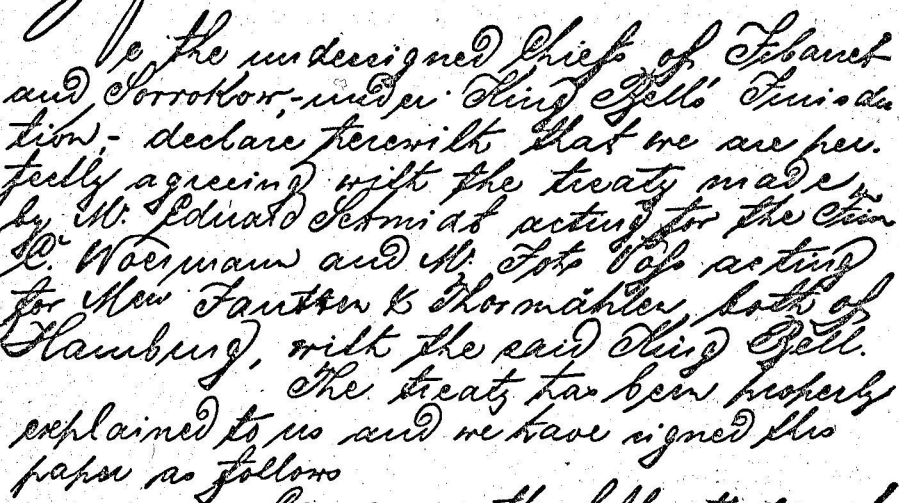 We the undersigned Chiefs of Jibaret
and Sorrokow,- under King Bell's Jurisdic
tion,- declare herewith that we are per-
fectly agreeing with the treaty made
by Mr. Eduard Schmidt acting for the Firm
C. Woermann and Mr. Joh. Voss acting
for Mess Jantzen & Thormählen, both of
Hamburg, with the said King Bell.
The treaty has been properly
explained to us and we have signed this
paper as follows